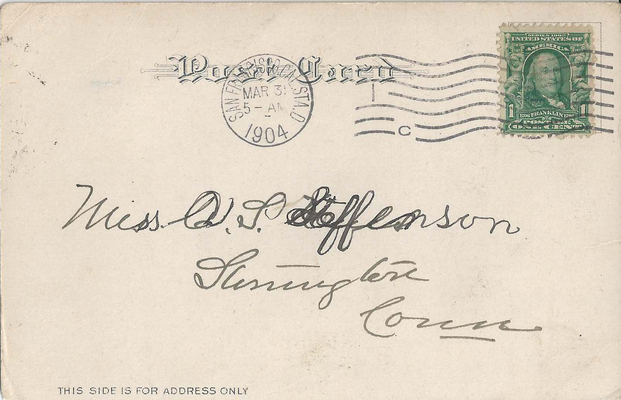 Post Card
SAN FRANCISCO, CAL. STA. D.
MAR 3
5-AM
1904
C
SERIES 1902
UNITED STATES OF
AMERICA
1 FRANKLIN 1
POSTAGE
ONE CENT
Miss A. S. Steffenson
Stonington
Conn
THIS SIDE IS FOR ADDRESS ONLY